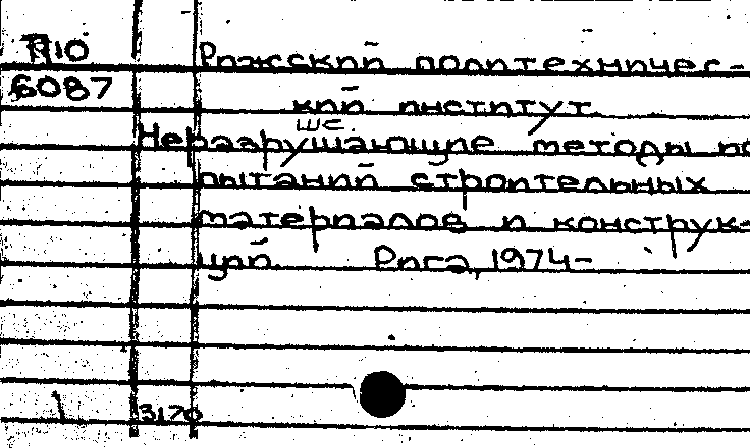 П10 Рижский политехничес-
6087
кий институт.
ше.
Неразрушающие методы по
пытаний строительных
материалов и конструк-
ций. Рига, 1974-
3170